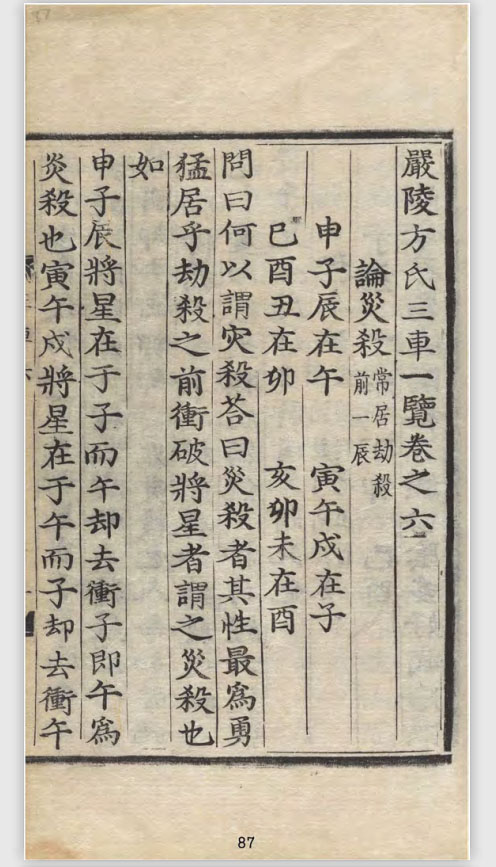 嚴陵方氏三車一覽卷之六
論災殺 常居劫殺前一辰
申子辰在午 寅午戌在子
巳酉丑在卯 亥卯未在酉
問曰何以謂灾殺荅曰災殺者其性最爲勇
猛居乎劫殺之前衝破將星者謂之災殺也
如
申子辰將星在于子而午却去衝子即午爲
災殺也寅午戌將星在于午而子却去衝午
87